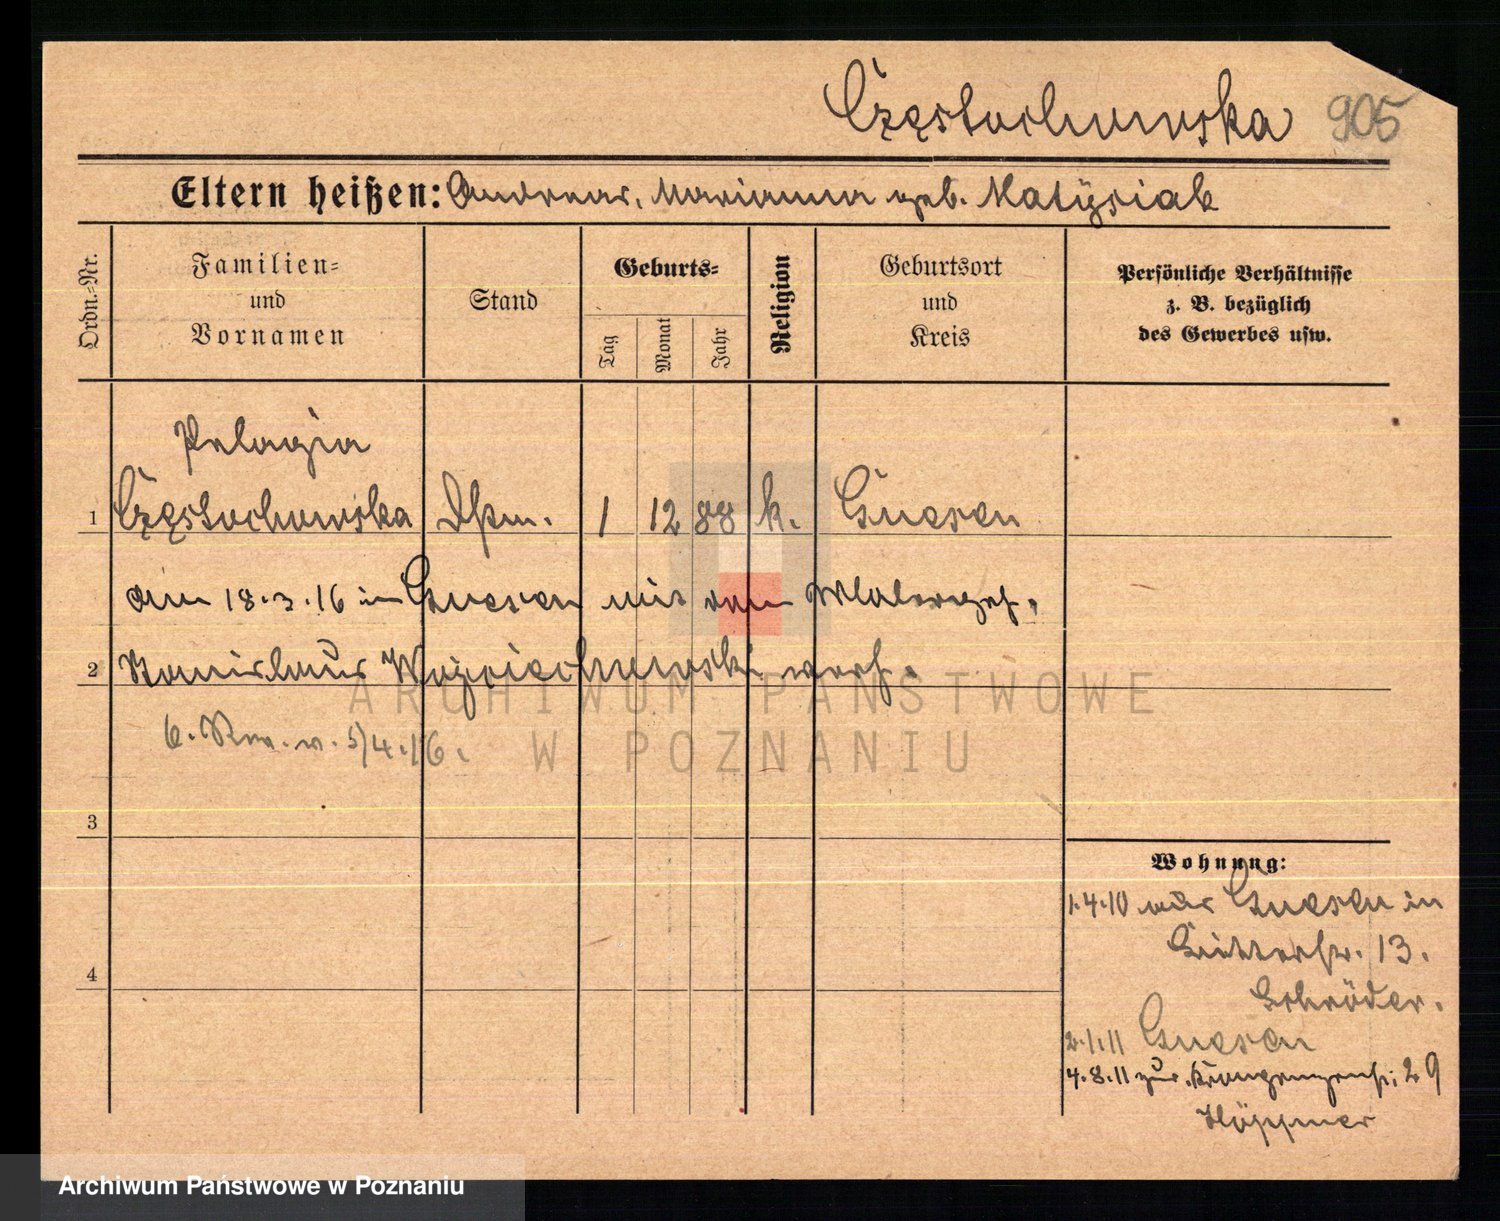 Częstochowska 905
Eltern heißen: Andreas, Marianna geb. Matÿsiak
Ordn.=Nr.
Familien=
und
Vornamen
Stand
Geburts=
Tag
Monat
Jahr
Religion
Geburtsort
und
Kreis
Persönliche Verhältnisse
z. B. bezüglich
des Gewerbes usw.
Pelagia
1 Częstochowska Dstm. 1 12 88 k. Gnesen
am 18.3.16 in Gnesen mit dem Malergeh.
2 Stanislaus Woÿciechowski verh.
6. Rev. v. 5/4.16.
3
4
Wohnung:
1.4.10 aus Gnesen in
Ritterstr. 13.
Schröder.
2.1.11 Gnesen
4.8.11 zur. Kronprinzenstr. 29
Höppner
ARCHIWUM PAŃSTWOWE
W POZNANIU
Archiwum Państwowe w Poznaniu